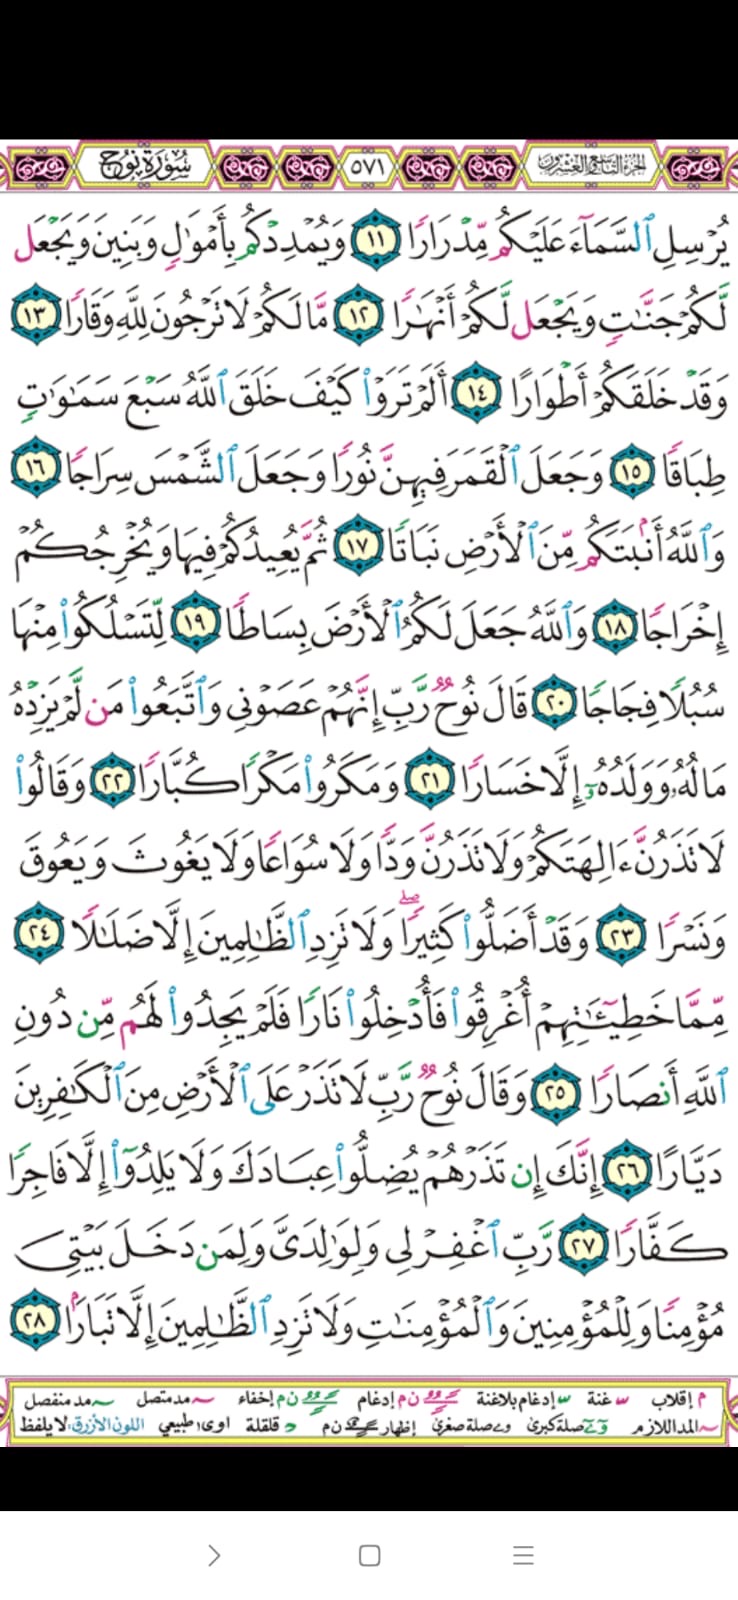 سُورَةُ نُوحٍ ٥٧١ الجزء التاسع والعشرون
يُرْسِلِ ٱلسَّمَآءَ عَلَيْكُم مِّدْرَارًا ١١ وَيُمْدِدْكُم بِأَمْوَٰلٍ وَبَنِينَ وَيَجْعَل
لَّكُمْ جَنَّـٰتٍ وَيَجْعَل لَّكُمْ أَنْهَـٰرًا ١٢ مَّا لَكُمْ لَا تَرْجُونَ لِلَّهِ وَقَارًا ١٣
وَقَدْ خَلَقَكُمْ أَطْوَارًا ١٤ أَلَمْ تَرَوْا۟ كَيْفَ خَلَقَ ٱللَّهُ سَبْعَ سَمَـٰوَٰتٍ
طِبَاقًا ١٥ وَجَعَلَ ٱلْقَمَرَ فِيهِنَّ نُورًا وَجَعَلَ ٱلشَّمْسَ سِرَاجًا ١٦
وَٱللَّهُ أَنۢبَتَكُم مِّنَ ٱلْأَرْضِ نَبَاتًا ١٧ ثُمَّ يُعِيدُكُمْ فِيهَا وَيُخْرِجُكُمْ
إِخْرَاجًا ١٨ وَٱللَّهُ جَعَلَ لَكُمُ ٱلْأَرْضَ بِسَاطًا ١٩ لِّتَسْلُكُوا۟ مِنْهَا
سُبُلًا فِجَاجًا ٢٠ قَالَ نُوحٌ رَّبِّ إِنَّهُمْ عَصَوْنِى وَٱتَّبَعُوا۟ مَن لَّمْ يَزِدْهُ
مَالُهُۥ وَوَلَدُهُۥٓ إِلَّا خَسَارًا ٢١ وَمَكَرُوا۟ مَكْرًا كُبَّارًا ٢٢ وَقَالُوا۟
لَا تَذَرُنَّ ءَالِهَتَكُمْ وَلَا تَذَرُنَّ وَدًّا وَلَا سُوَاعًا وَلَا يَغُوثَ وَيَعُوقَ
وَنَسْرًا ٢٣ وَقَدْ أَضَلُّوا۟ كَثِيرًا ۖ وَلَا تَزِدِ ٱلظَّـٰلِمِينَ إِلَّا ضَلَـٰلًا ٢٤
مِّمَّا خَطِيٓـَٔـٰتِهِمْ أُغْرِقُوا۟ فَأُدْخِلُوا۟ نَارًا فَلَمْ يَجِدُوا۟ لَهُم مِّن دُونِ
ٱللَّهِ أَنصَارًا ٢٥ وَقَالَ نُوحٌ رَّبِّ لَا تَذَرْ عَلَى ٱلْأَرْضِ مِنَ ٱلْكَـٰفِرِينَ
دَيَّارًا ٢٦ إِنَّكَ إِن تَذَرْهُمْ يُضِلُّوا۟ عِبَادَكَ وَلَا يَلِدُوٓا۟ إِلَّا فَاجِرًا
كَفَّارًا ٢٧ رَّبِّ ٱغْفِرْ لِى وَلِوَٰلِدَىَّ وَلِمَن دَخَلَ بَيْتِىَ
مُؤْمِنًا وَلِلْمُؤْمِنِينَ وَٱلْمُؤْمِنَـٰتِ وَلَا تَزِدِ ٱلظَّـٰلِمِينَ إِلَّا تَبَارًۢا ٢٨
م إقلاب غنة إدغام بلاغنة ن م إدغام ن م إخفاء مد متصل مد منفصل
المد اللازم صلة كبرى صلة صغرى إظهار ن م د قلقلة اوى طبيعي اللون الأزرق: لا يلفظ